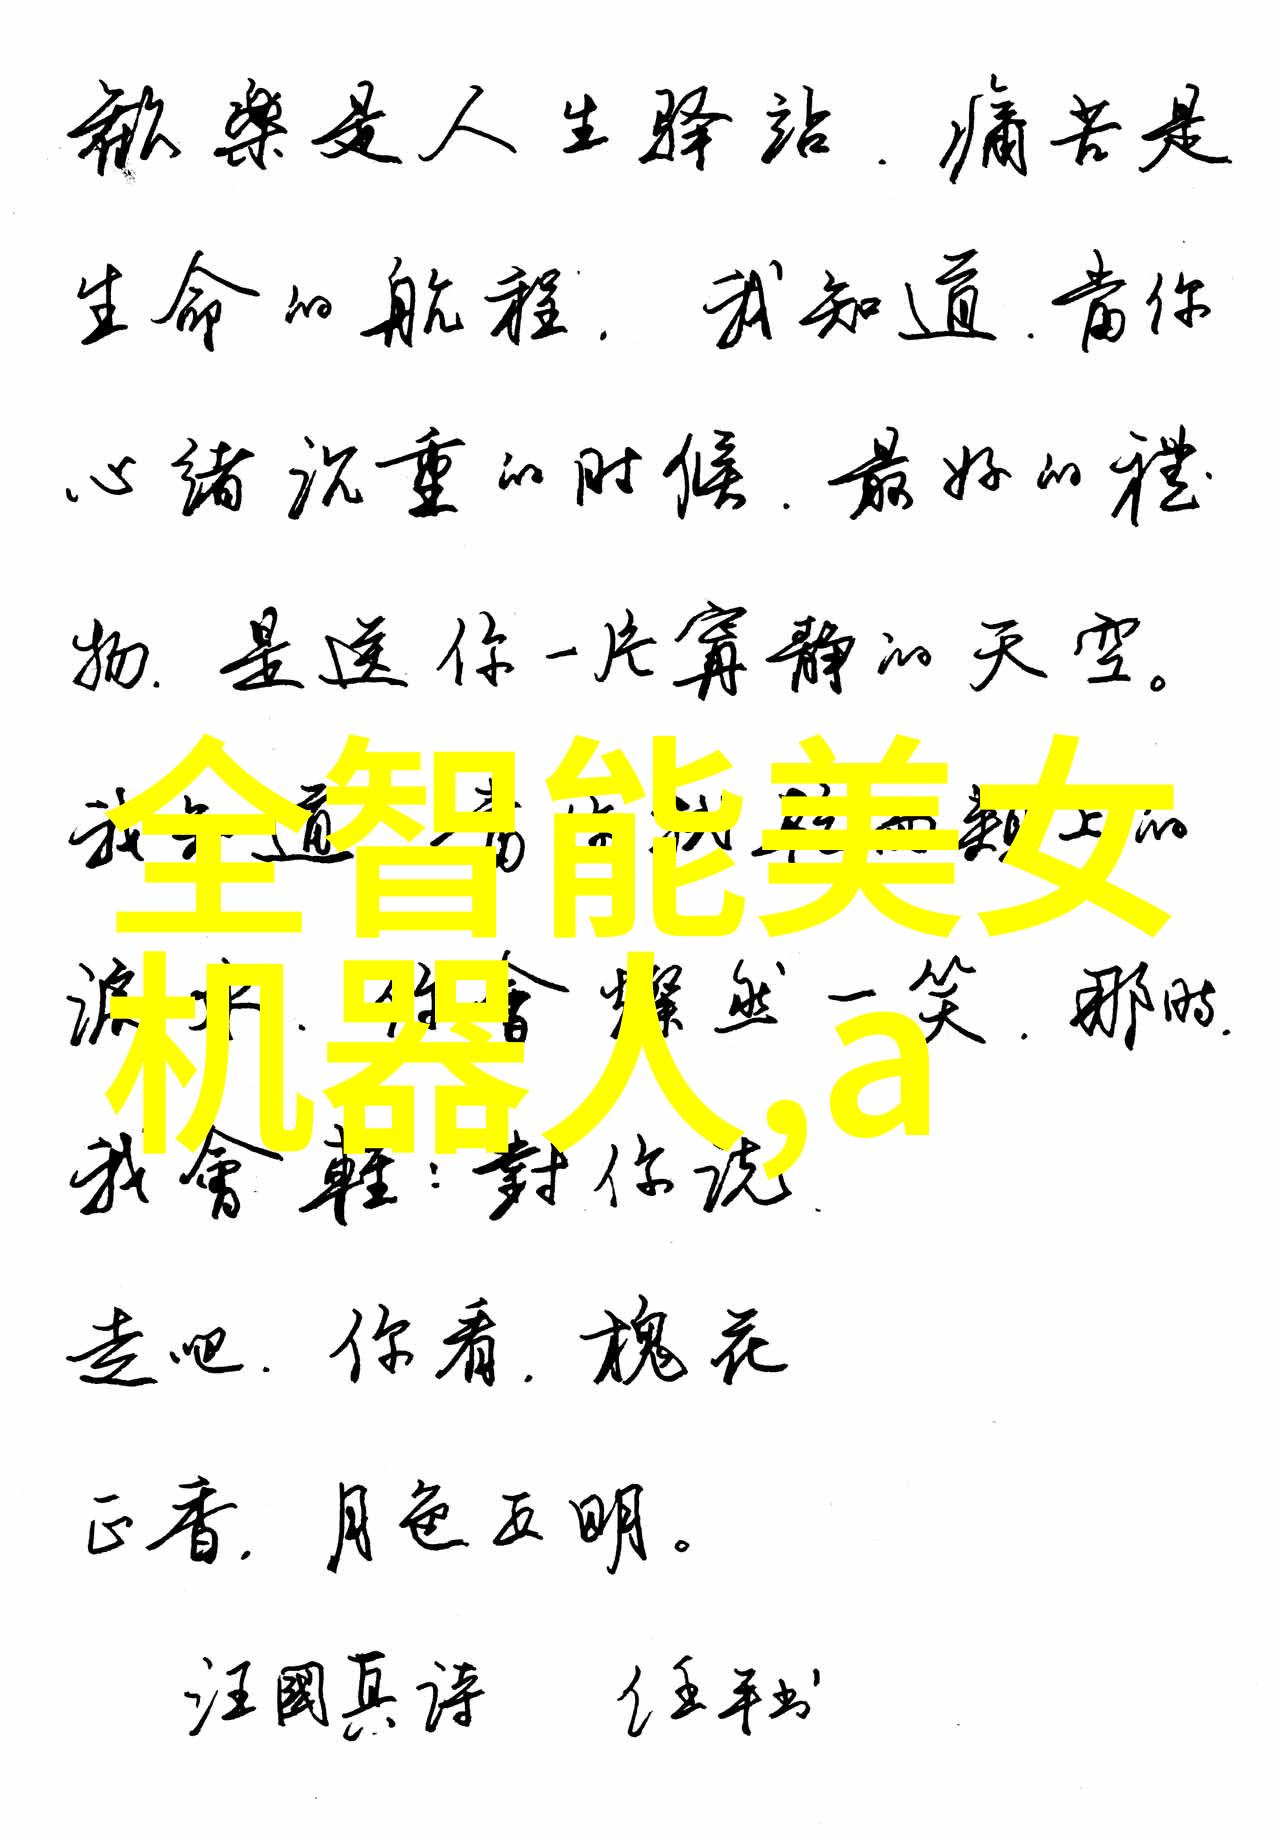 歡樂是人生驿站.痛苦是
生命的航程.我知道.當你
心緒沉重的时候.最好的禮
物.是送你一片寧靜的天空。
全智能美女
我知道 當你 上的
机器人,a
淚水.你會燦然一笑.那時.
我會輕:對你说.
走吧.你看.槐花
正香.月色正明。
汪國真詩 任平书